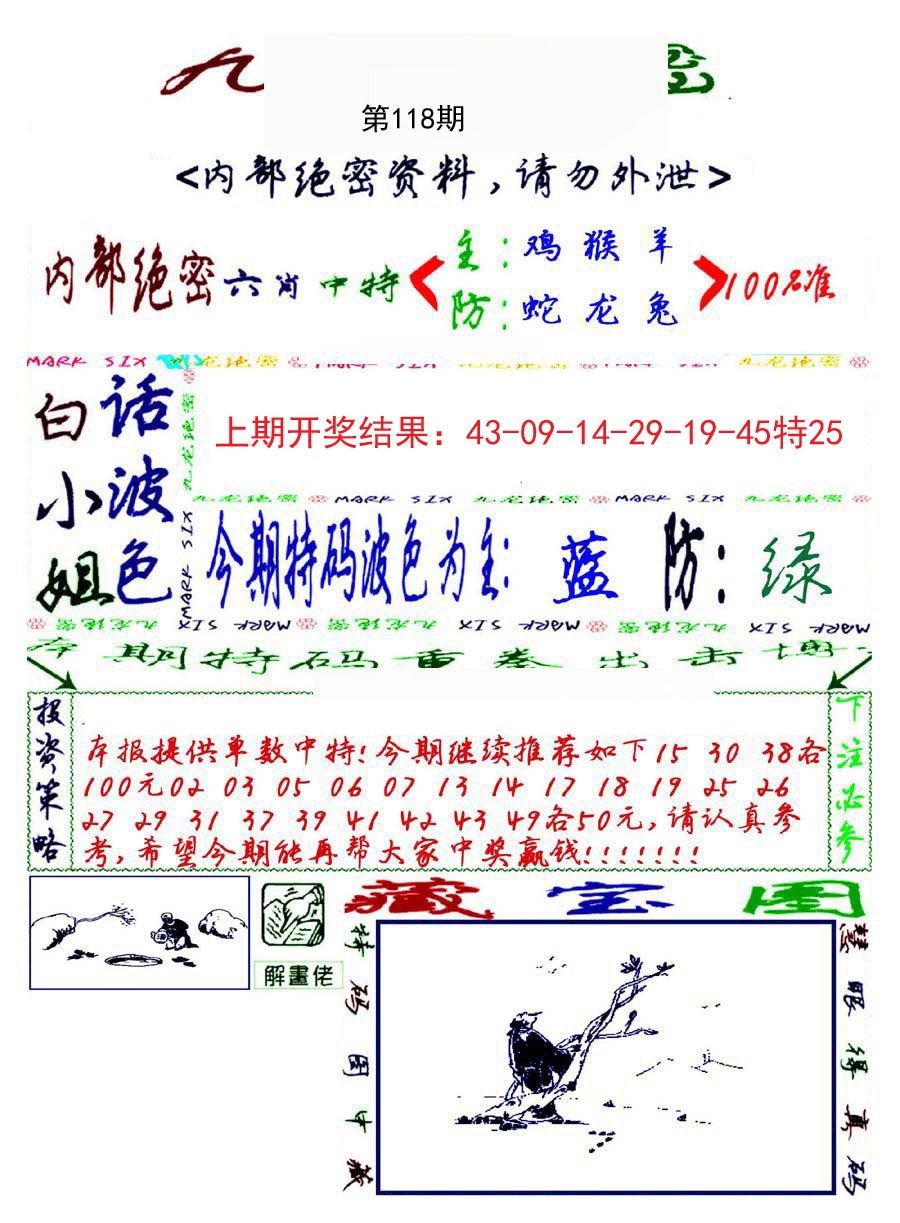 九
密
第118期
<内部绝密资料,请勿外泄>
内部绝密六肖中特
主:鸡 猴 羊
防:蛇 龙 兔
100%准
MARK SIX 九龙绝密 MARK SIX 九龙绝密 MARK SIX 九龙绝密
白话
小波
姐色
九龙绝密
MARK SIX
上期开奖结果:43-09-14-29-19-45特25
九龙绝密 MARK SIX 九龙绝密 MARK SIX 九龙绝密
今期特码波色为主: 蓝 防: 绿
九龙绝密 MARK SIX MARK SIX 九龙绝密 MARK SIX MARK SIX 九龙绝密 MARK SIX MARK SIX
本期特码重拳出击
投资策略
本报提供单数中特!今期继续推荐如下15 30 38各
100元02 03 05 06 07 13 14 17 18 19 25 26
27 29 31 37 39 41 42 43 49各50元,请认真参
考,希望今期能再帮大家中奖赢钱!!!!!!!
下注必参
解畫佬
藏宝图
特码图中藏
慧眼得真码